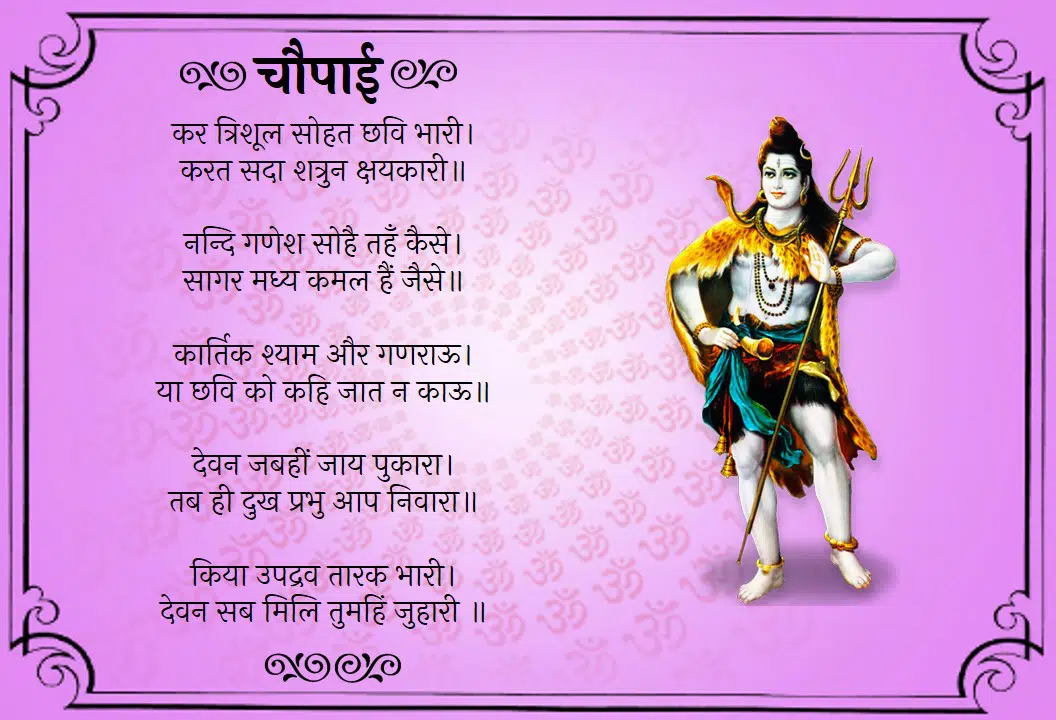 चौपाई
कर त्रिशूल सोहत छवि भारी।
करत सदा शत्रुन क्षयकारी॥
नन्दि गणेश सोहै तहँ कैसे।
सागर मध्य कमल हैं जैसे॥
कार्तिक श्याम और गणराऊ।
या छवि को कहि जात न काऊ॥
देवन जबहीं जाय पुकारा।
तब ही दुख प्रभु आप निवारा॥
किया उपद्रव तारक भारी।
देवन सब मिलि तुमहिं जुहारी ॥